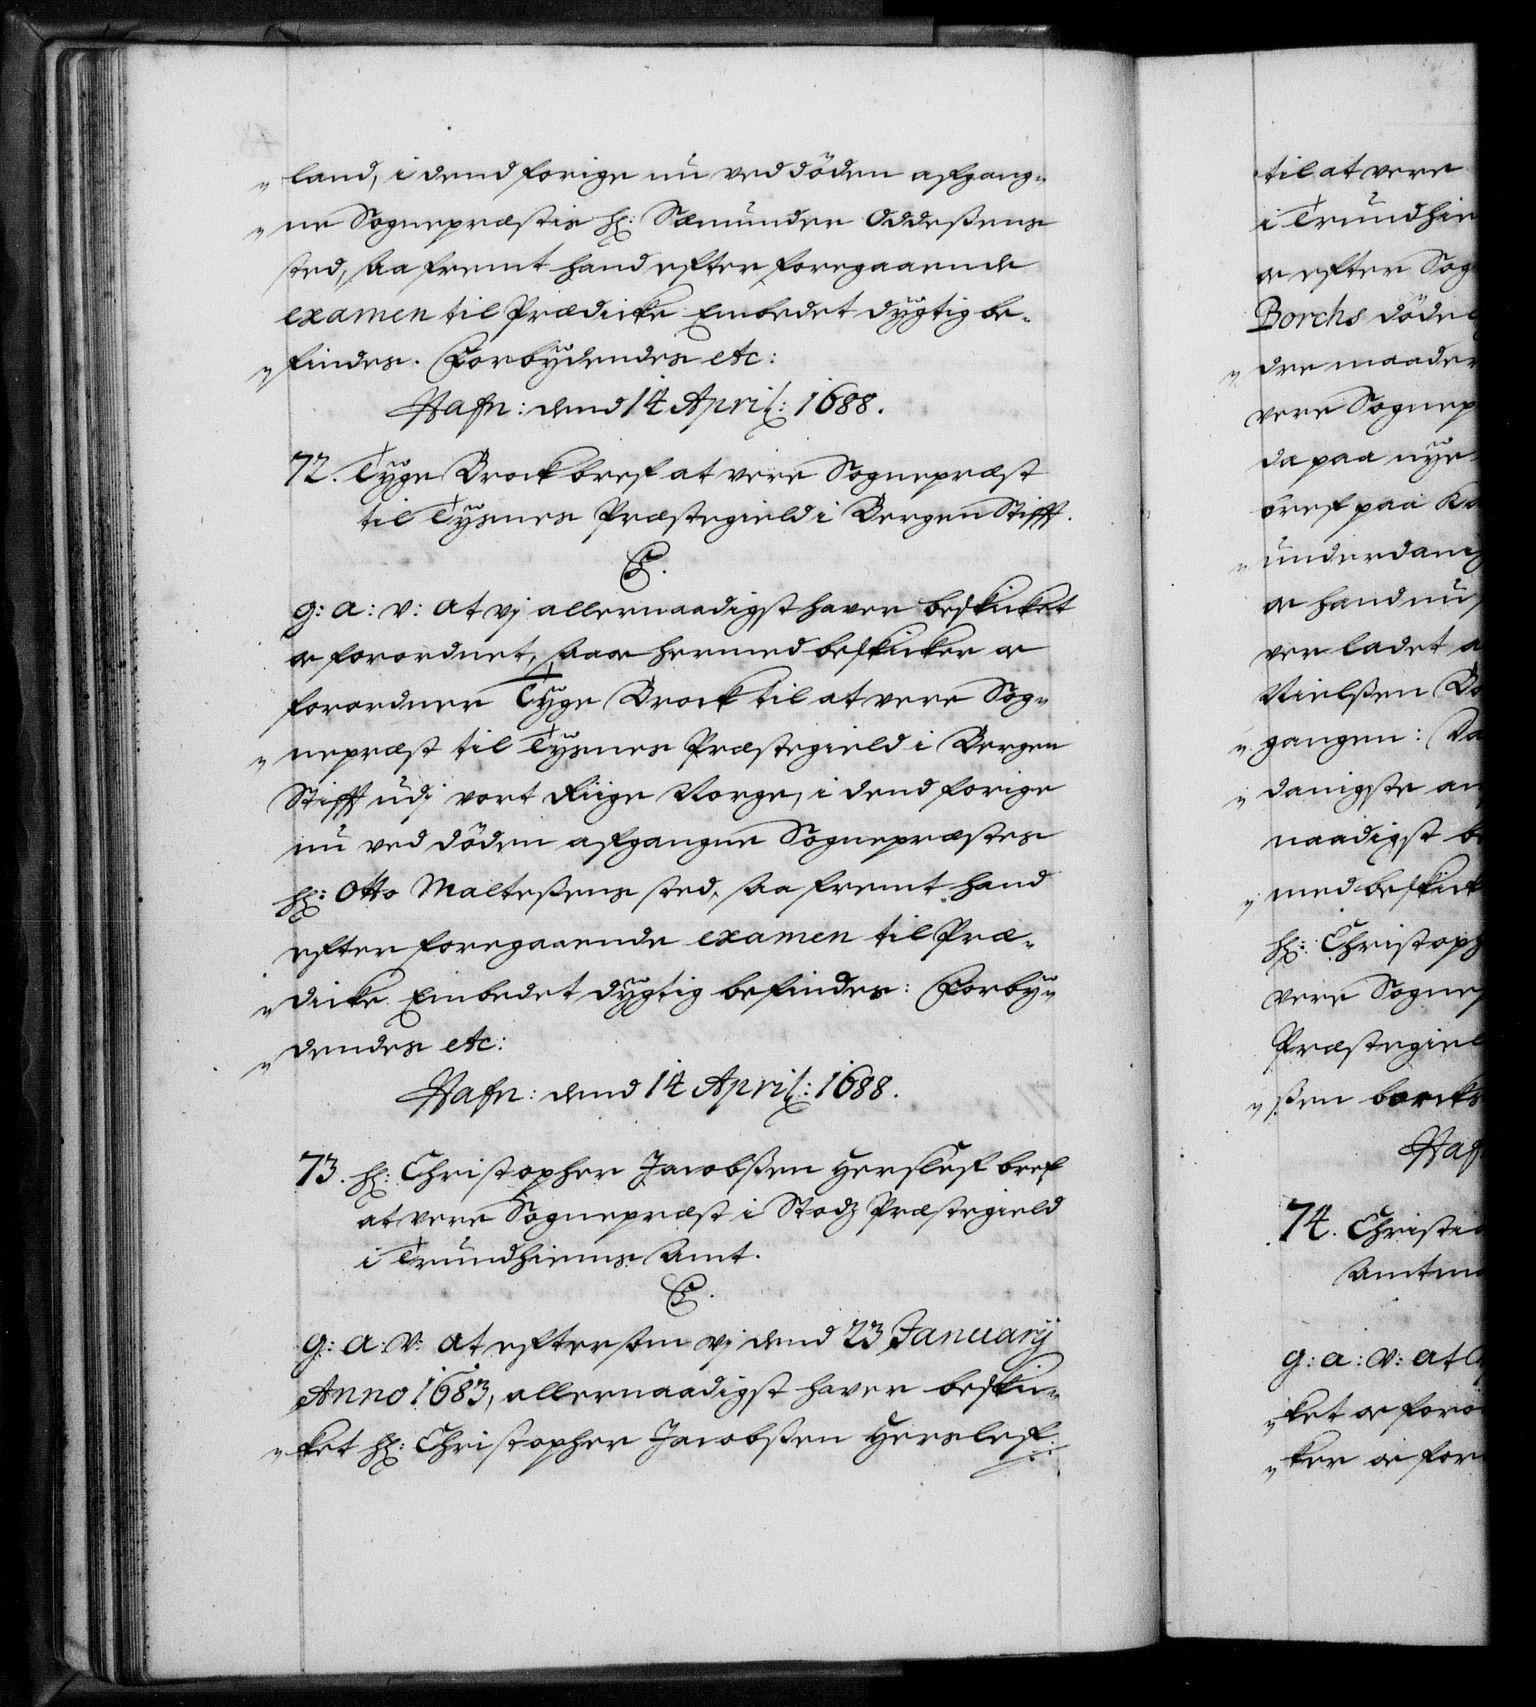 land, i dend forige nu ved döden afgang-
ne Sognepræstis Hr: Sæmunder Oddeßens
sted, saa fremt hand efter foregaaende
examen til Prædicke Embedet dygtig be-
findes. Forbydendes etc:
Hafn: dend 14 April: 1688.
72. Tyge Brock bref at vere Sognepræst
til Tysnes Præstegield i Bergen Stifft.
C.
G: A: V: at vj allernaadigst haver beskicket
oc forordnet, saa oc hermed beskicker oc
forordner Tyge Brock til at vere Sog-
nepræst til Tysnes Præstegield i Bergen
Stifft udj vort Riige Norge, i dend forige
nu ved döden afgangne Sognepræstes
Hr: Otto Malteßens sted, saa fremt hand
efter foregaaende examen til Præ-
dicke Embedet dygtig befindes: Forby-
dendes etc:
Hafn: dend 14 April: 1688.
73. Hr: Christopher Jacobßen Herslef bref
at vere Sognepræst i Stodz Præstegield
i Trundhiems Amt.
C.
G: A: V: at eftersom vj dend 23 January
Anno 1683, allernaadigst haver beskic-
ket Hr: Christopher Jacobßen Herslef
til at vere
i Trundhie
oc efter Sog
Borchs döde
dre maader
vere Sognep
da paa nye
bref paa
underdanig
oc hand nu
ver ladet
Nielßen
gangen:
danigste
naadigst
med beskick
Hr: Christoph
vere Sognep
Præstegiel
ßen borcks
Haf
74. Christia
Amtm
G: A: V: at
ket oc foro
ker oc for